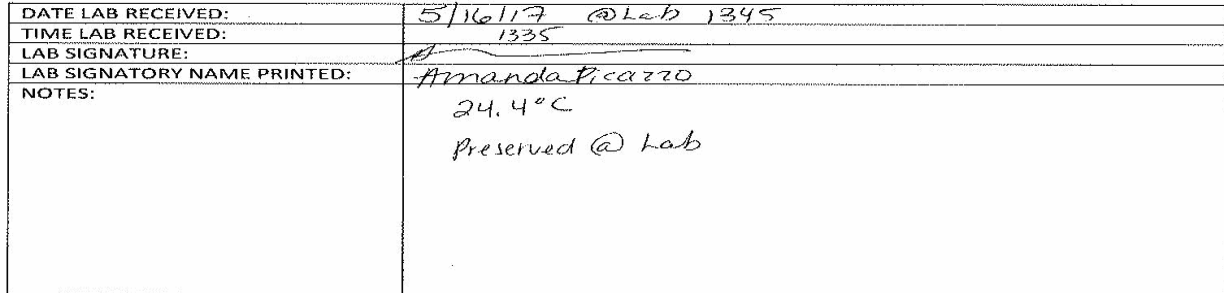 DATE LAB RECEIVED: 5/16/17 @Lab 1345
TIME LAB RECEIVED: 1335
LAB SIGNATURE:
LAB SIGNATORY NAME PRINTED: Amanda Picazzo
NOTES: 24.4°C
Preserved @ Lab